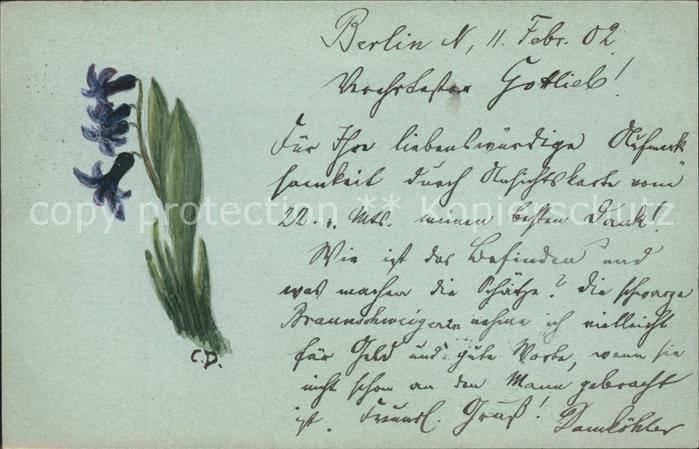 Berlin N, 11. Febr. 02.
Verehrtester Gottlieb!
Für Ihre liebenswürdige Aufmerk
samkeit durch Ansichtskarte vom
22. v. Mts. meinen besten Dank!
Wie ist das Befinden und
was machen die Schätze? Die schwarze
Braunschweigerin nehme ich vielleicht
für Geld und gute Worte, wenn sie
nicht schon an den Mann gebracht
ist. Freundl. Gruß! Damköhler
C.D.
copy protection ** Kopierschutz